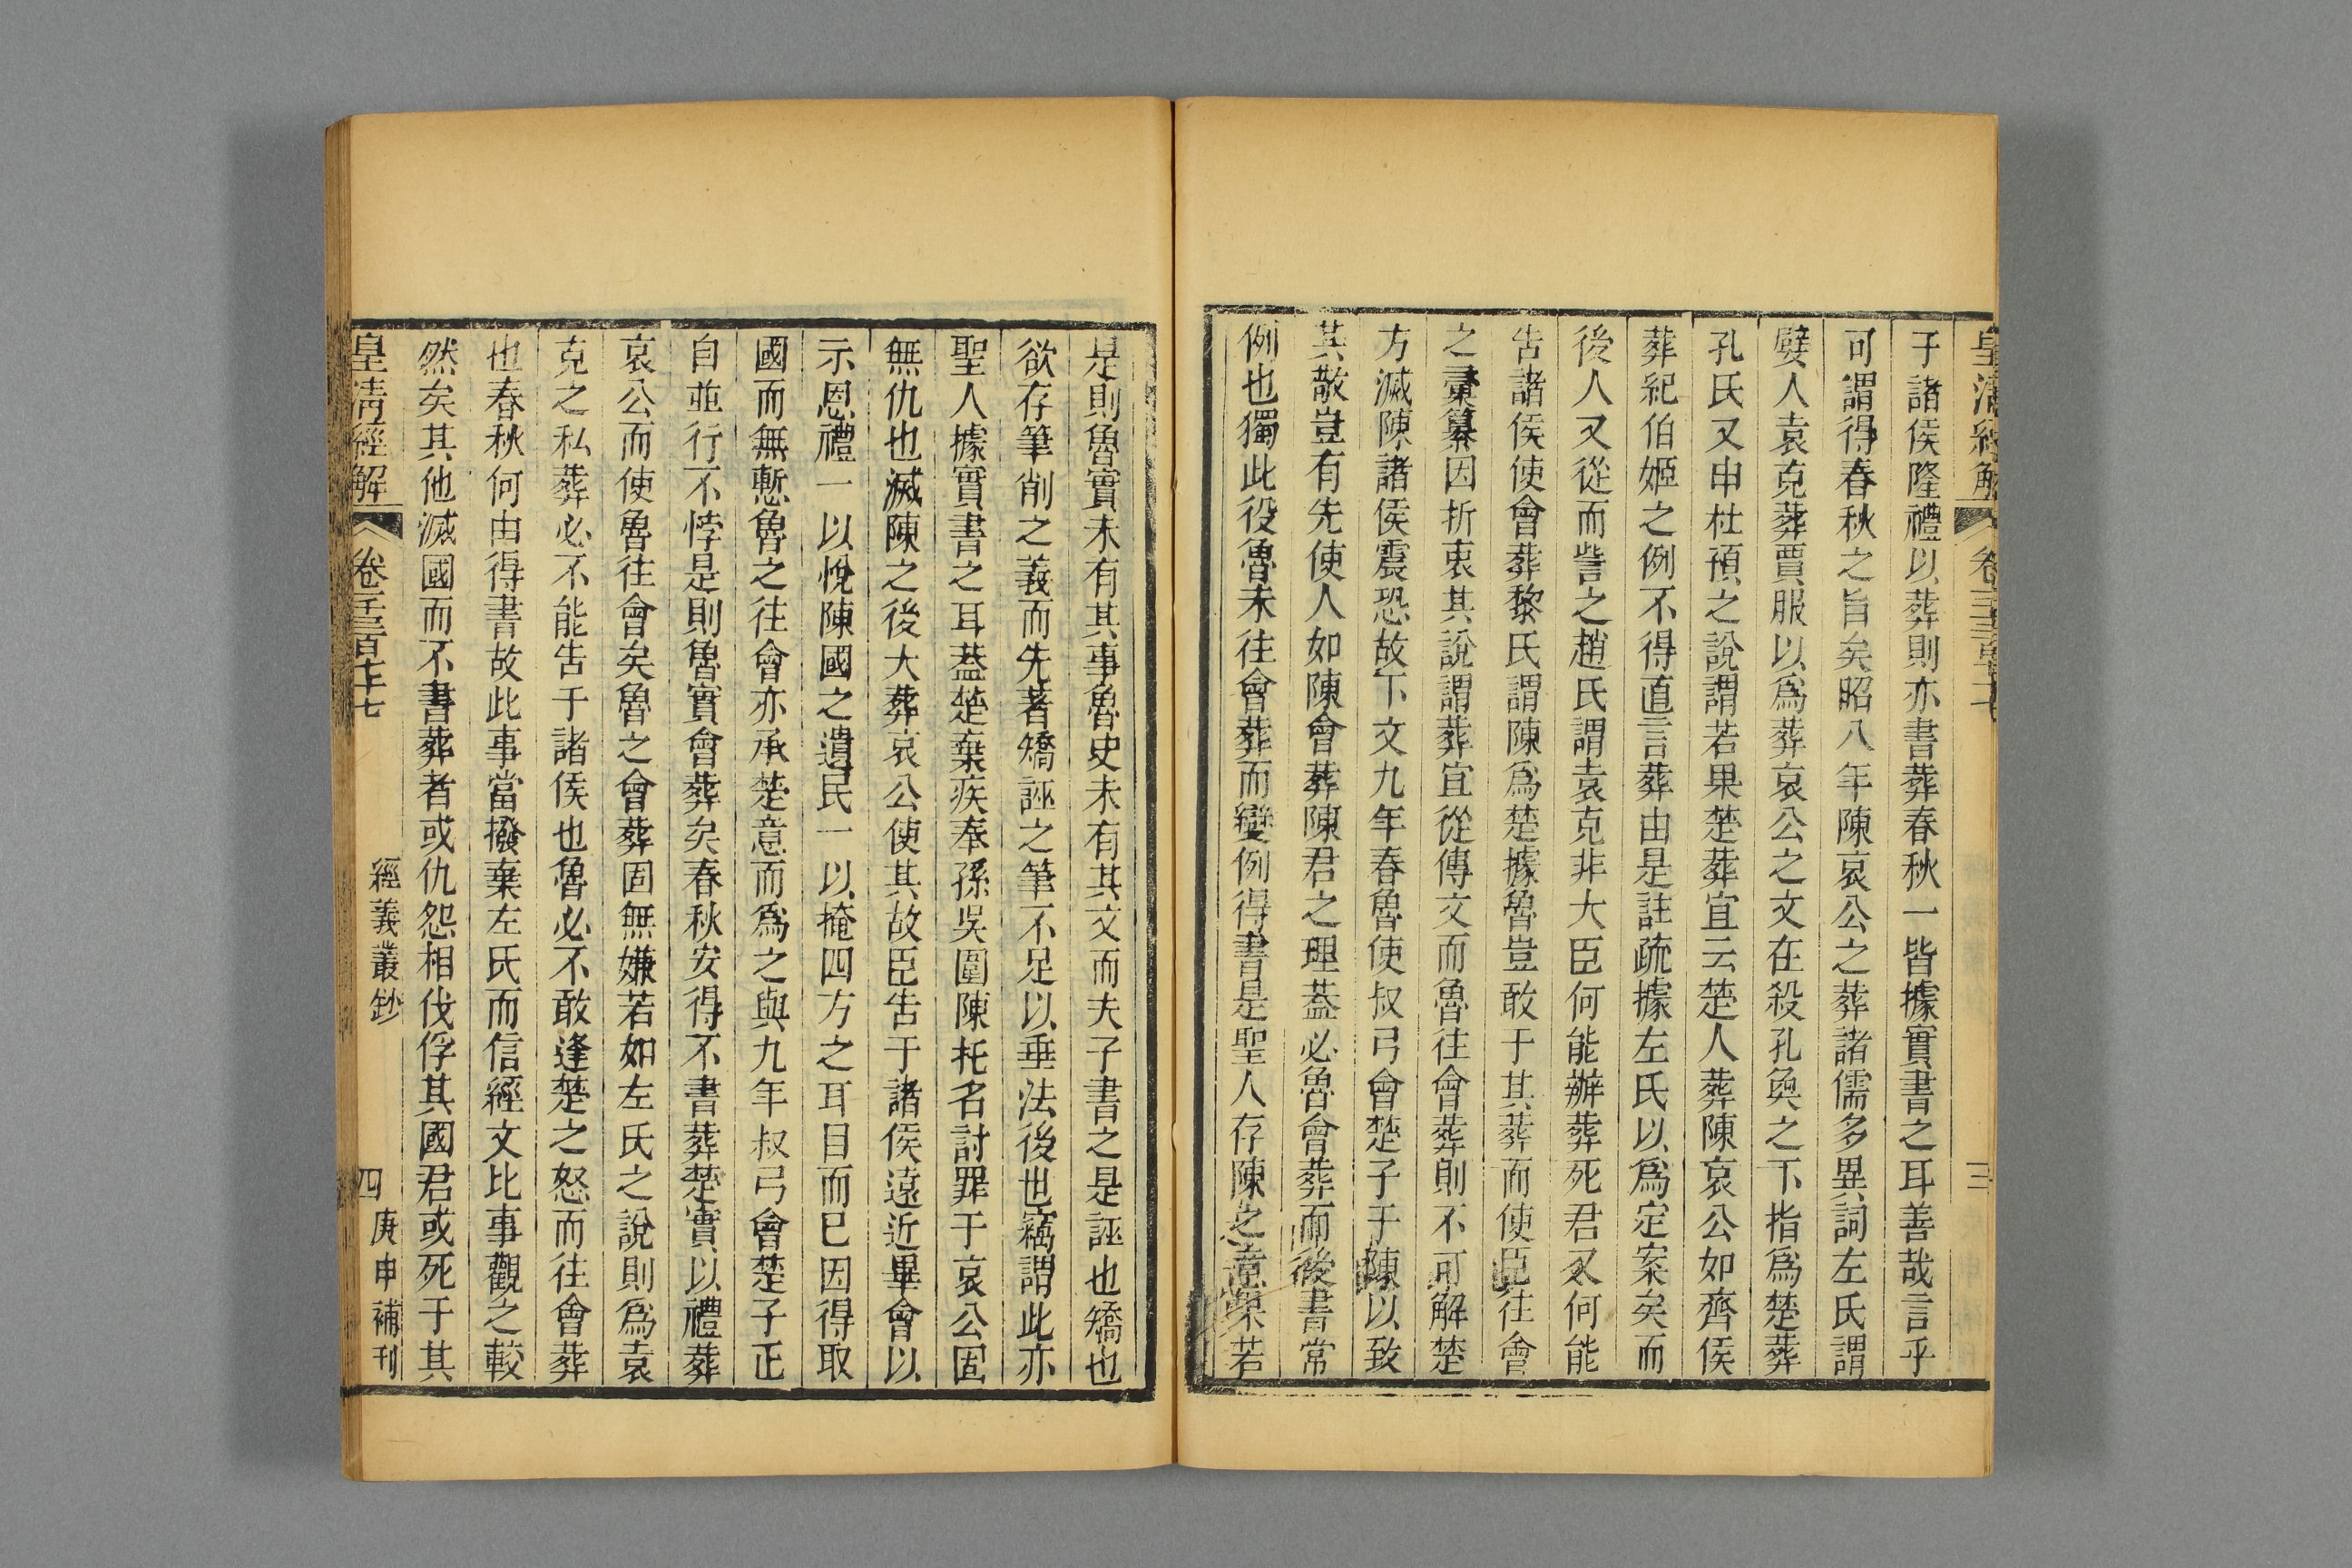 子諸侯隆禮以葬則亦書葬春秋一皆據實書之耳善哉言乎
可謂得春秋之旨矣昭八年陳哀公之葬諸儒多異詞左氏謂
嬖人袁克葬賈服以爲葬哀公之文在殺孔奐之下指爲楚葬
孔氏又申杜預之說謂若果楚葬宜云楚人葬陳哀公如齊侯
葬紀伯姬之例不得直言葬由是註疏據左氏以爲定案矣而
後人又從而訾之趙氏謂袁克非大臣何能辦葬死君又何能
告諸侯使會葬黎氏謂陳爲楚據魯豈敢于其葬而使臣往會
之彚纂因折衷其說謂葬宜從傳文而魯往會葬則不可解楚
方滅陳諸侯震恐故下文九年春魯使叔弓會楚子于陳以致
其敬豈有先使人如陳會葬陳君之理葢必魯會葬而後書常
例也獨此役魯未往會葬而變例得書是聖人存陳之意果若
是則魯實未有其事魯史未有其文而夫子書之是誣也矯也
欲存筆削之義而先著矯誣之筆不足以垂法後世竊謂此亦
聖人據實書之耳葢楚棄疾奉孫吳圍陳托名討罪于哀公固
無仇也滅陳之後大葬哀公使其故臣告于諸侯遠近畢會以
示恩禮一以悅陳國之遺民一以掩四方之耳目而已因得取
國而無慙魯之往會亦承楚意而爲之與九年叔弓會楚子正
自並行不悖是則魯實會葬矣春秋安得不書葬楚實以禮葬
哀公而使魯往會矣魯之會葬固無嫌若如左氏之說則爲袁
克之私葬必不能告于諸侯也魯必不敢逢楚之怒而往會葬
也春秋何由得書故此事當撥棄左氏而信經文比事觀之較
然矣其他滅國而不書葬者或仇怨相伐俘其國君或死于其
皇淸經解 卷一千三百七十七 經義叢鈔 四 庚申補刊